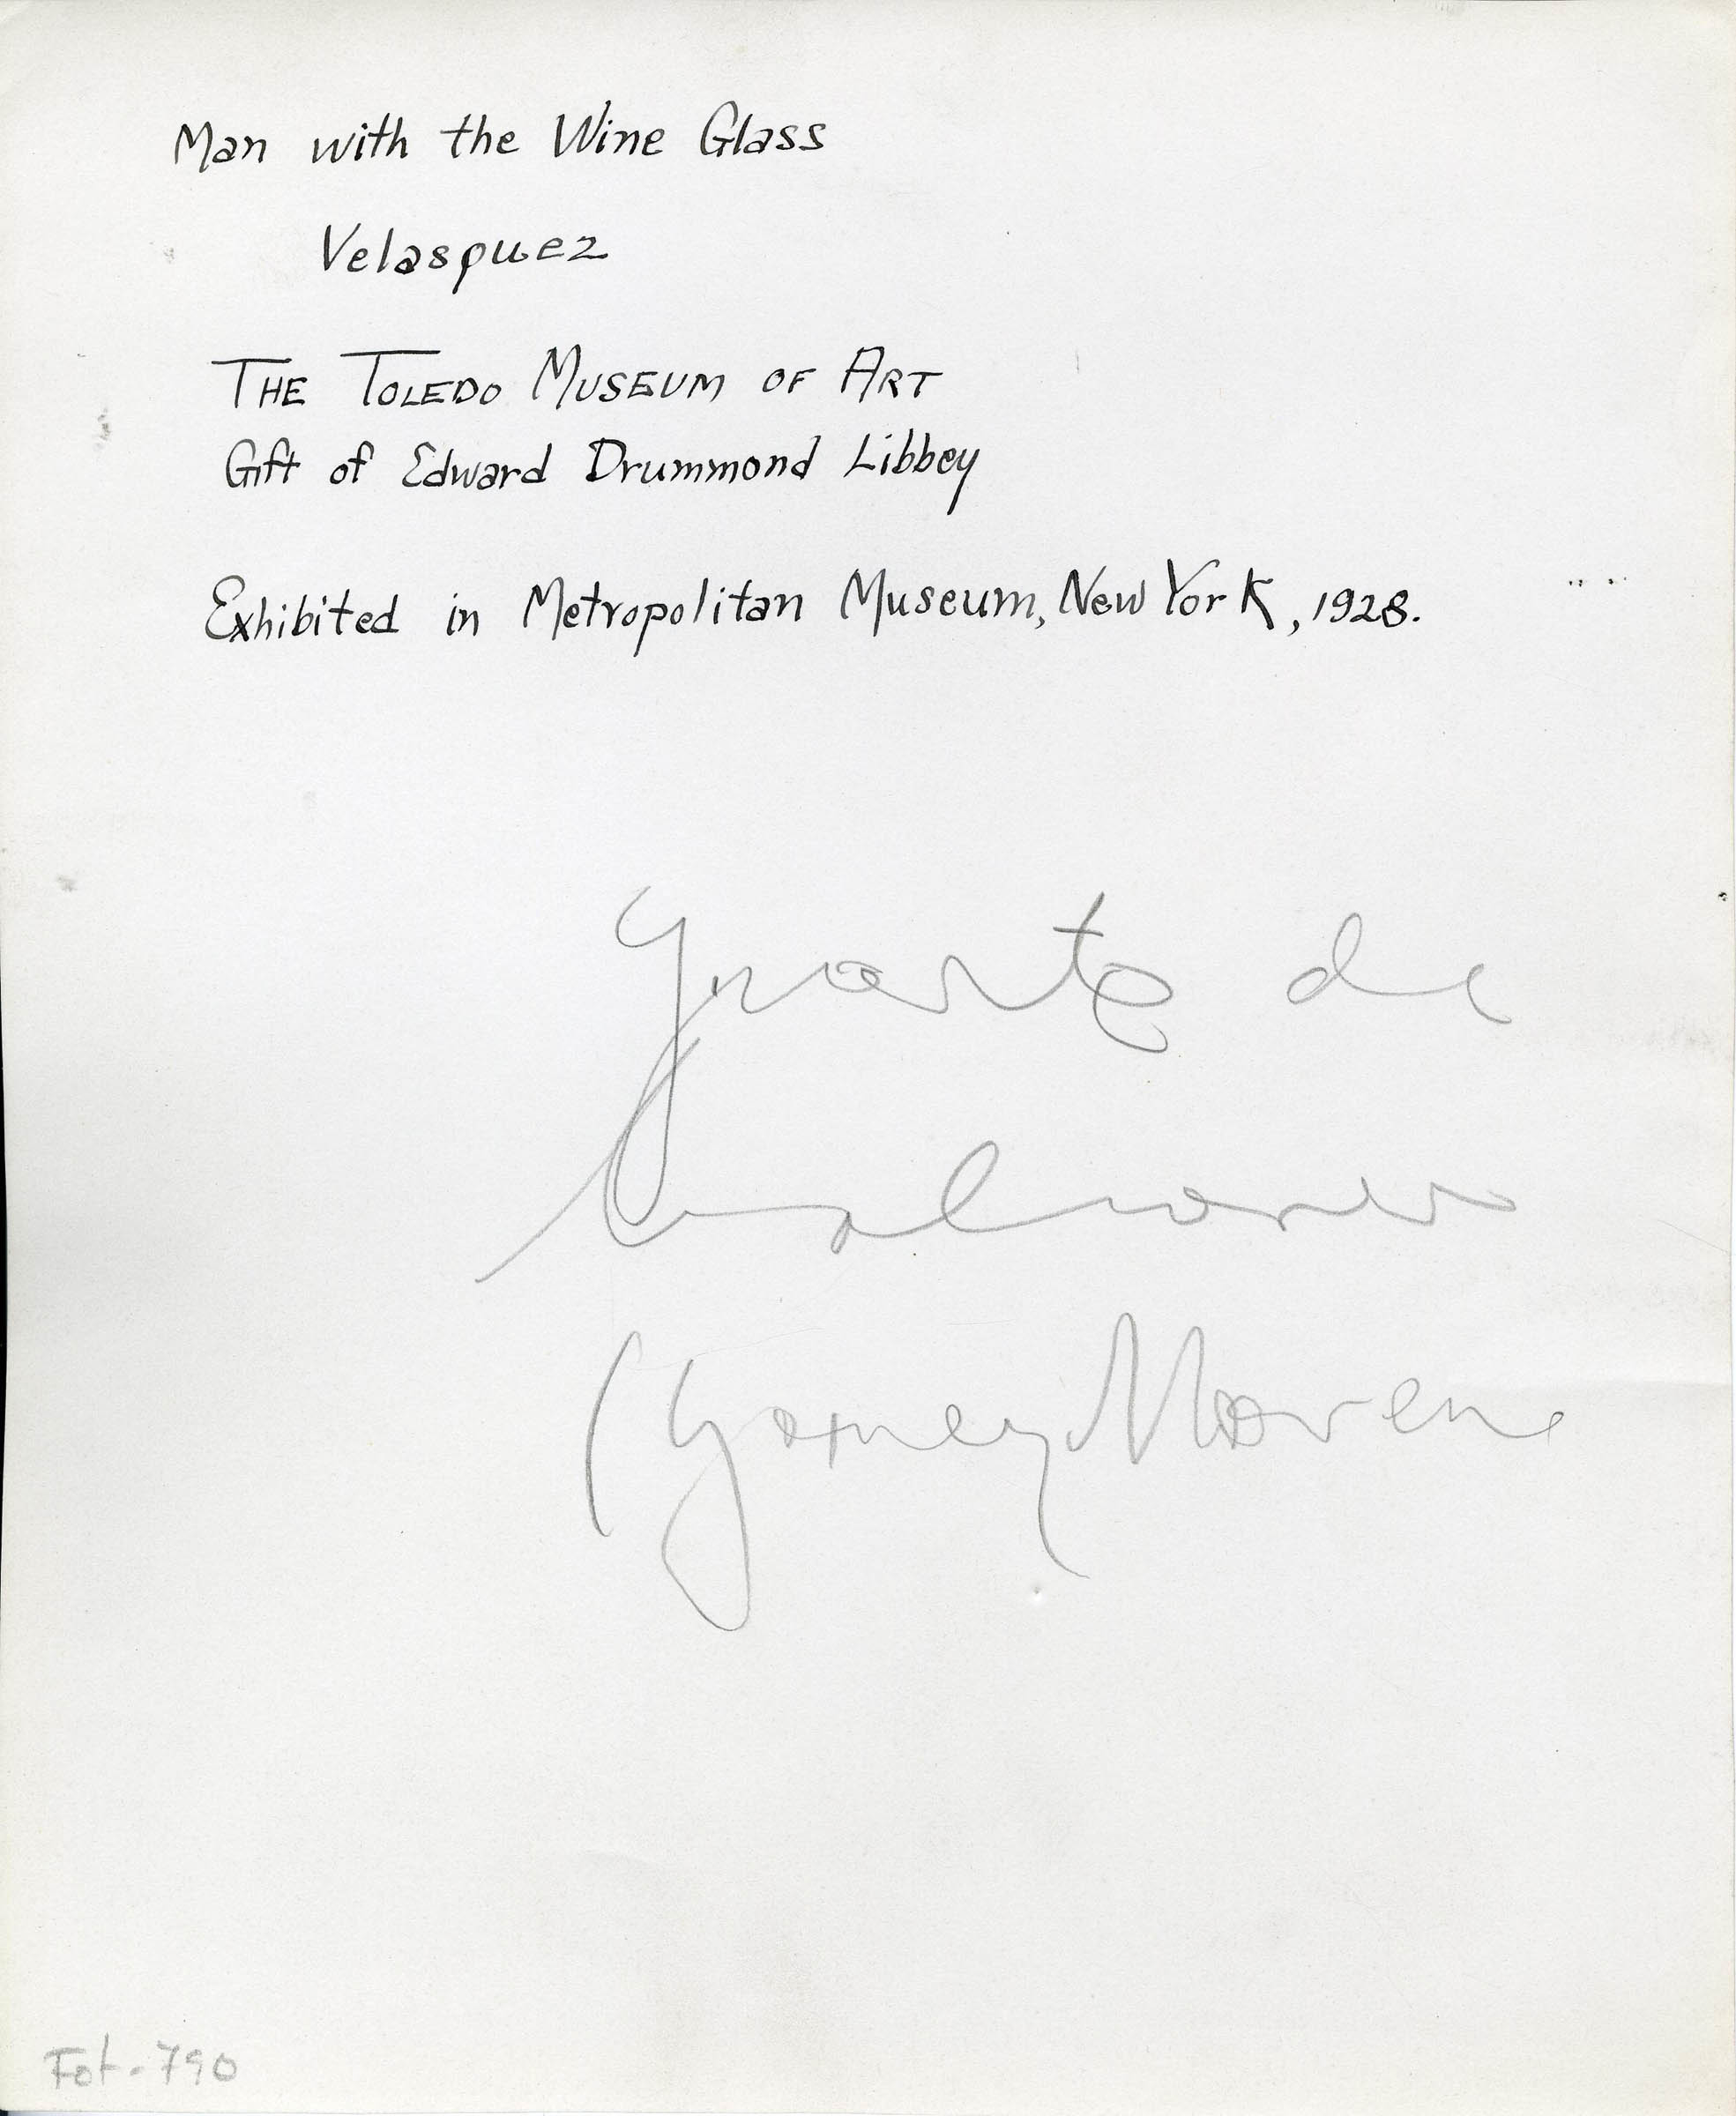 Man with the Wine Glass
Velasquez
THE TOLEDO MUSEUM OF ART
Gift of Edward Drummond Libbey
Exhibited in Metropolitan Museum, New York, 1928.
de
(Gomez Moreno
Fot-790